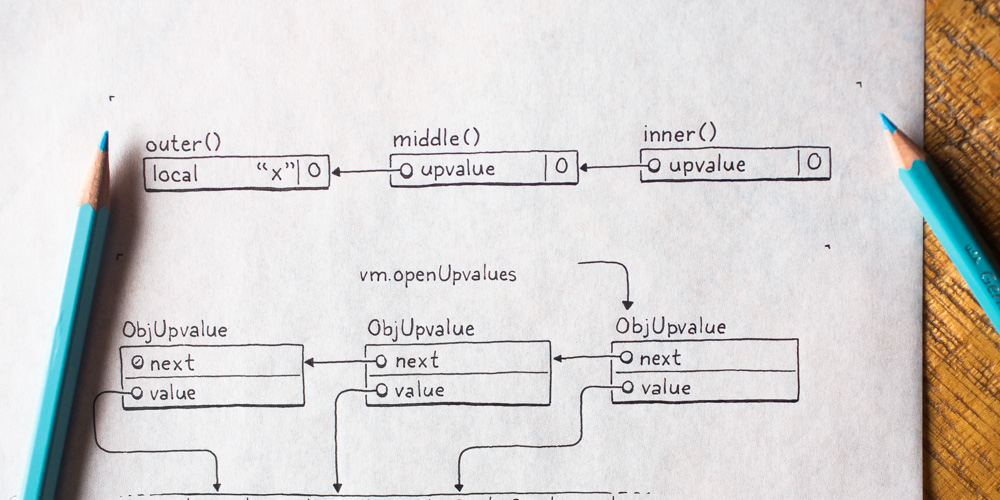 outer()
local "x" 0
middle()
upvalue 0
inner()
upvalue 0
vm.openUpvalues
ObjUpvalue
next
value
ObjUpvalue
next
value
ObjUpvalue
next
value